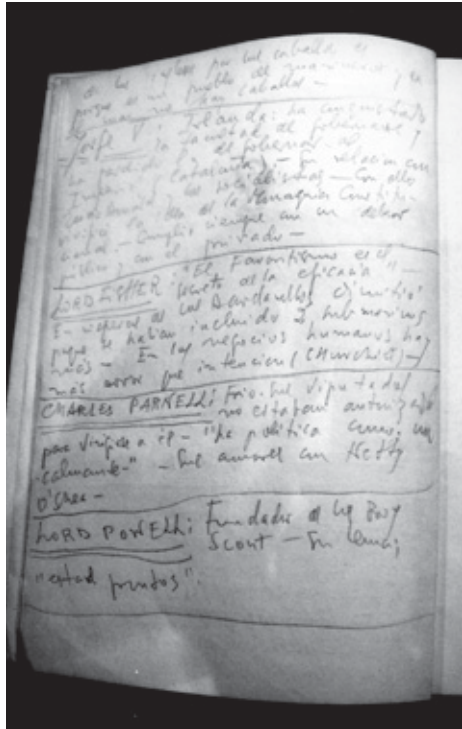 de los ingleses por los caballos es
porque es un pueblo de marineros y en
el mar no hay caballos —
Jorge V: Irlanda: ha conquistado
la facultad de gobernarse y
ha perdido el de gobernar al
Imperio (Cataluña) — Su relación con
los socialismos — Con ello
la idea de la Monarquía Constitu-
cional — Cumplió siempre con su deber
público y en el privado —
LORD FISHER: "El Favoritismo es el
secreto de la eficacia" —
En vísperas de los Dardanelos dimitió
porque se habían incluido 2 submarinos
más — En los negocios humanos hay
más error que intención (CHURCHILL) —
CHARLES PARNELL: Frío. Sus diputados
no estaban autorizados
para dirigirse a él — "La política como un
calmante" — Sus amores con Ketty
O'Shea —
LORD POWELL: Fundador de los Boy
Scout — Su lema;
"estad prontos".